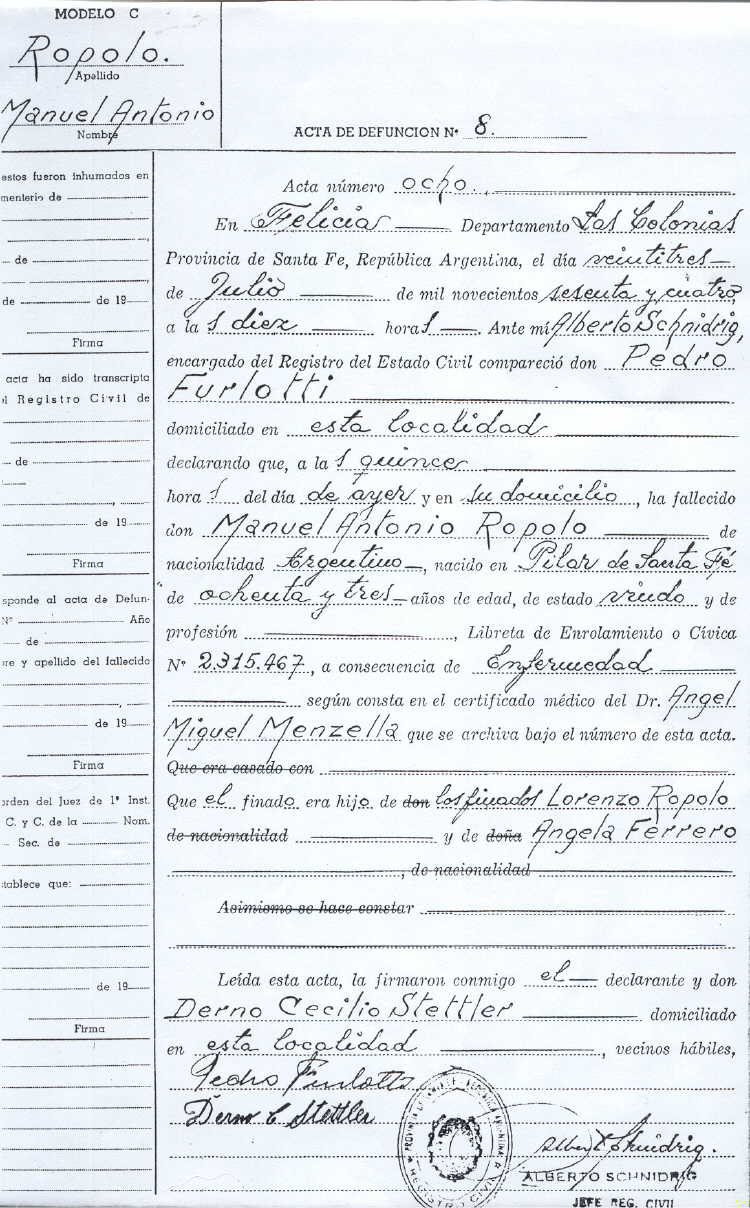 MODELO C
Ropolo.
Apellido
Manuel Antonio
Nombre
ACTA DE DEFUNCION Nº 8.
estos fueron inhumados en
menterio de
de
de de 19
Firma
acta ha sido transcripta
el Registro Civil de
de
de 19
Firma
sponde al acta de Defun-
Nº Año
de
re y apellido del fallecido
de 19
Firma
orden del Juez de 1ª Inst.
C. y C. de la Nom.
Sec. de
tablece que:
de 19
Firma
Acta número ocho.,
En Felicia Departamento Las Colonias
Provincia de Santa Fe, República Argentina, el día veintitres
de Julio de mil novecientos sesenta y cuatro,
a la s diez hora s. Ante mí Alberto Schnidrig,
encargado del Registro del Estado Civil compareció don Pedro
Furlotti
domiciliado en esta localidad
declarando que, a la s quince
hora s del día de ayer y en su domicilio, ha fallecido
don Manuel Antonio Ropolo de
nacionalidad Argentino, nacido en Pilar de Santa Fé
de ochenta y tres años de edad, de estado viudo y de
profesión , Libreta de Enrolamiento o Cívica
Nº 2.315.467, a consecuencia de Enfermedad
según consta en el certificado médico del Dr. Angel
Miguel Menzella que se archiva bajo el número de esta acta.
Que era casado con
Que el finado era hijo de don los finados Lorenzo Ropolo
de nacionalidad y de doña Angela Ferrero
, de nacionalidad
Asimismo se hace constar
Leída esta acta, la firmaron conmigo el declarante y don
Derno Cecilio Stettler domiciliado
en esta localidad , vecinos hábiles,
Pedro Furlotti
Derno C Stettler
REGISTRO CIVIL
Albert Schnidrig.
ALBERTO SCHNIDRIG
JEFE REG. CIVIL